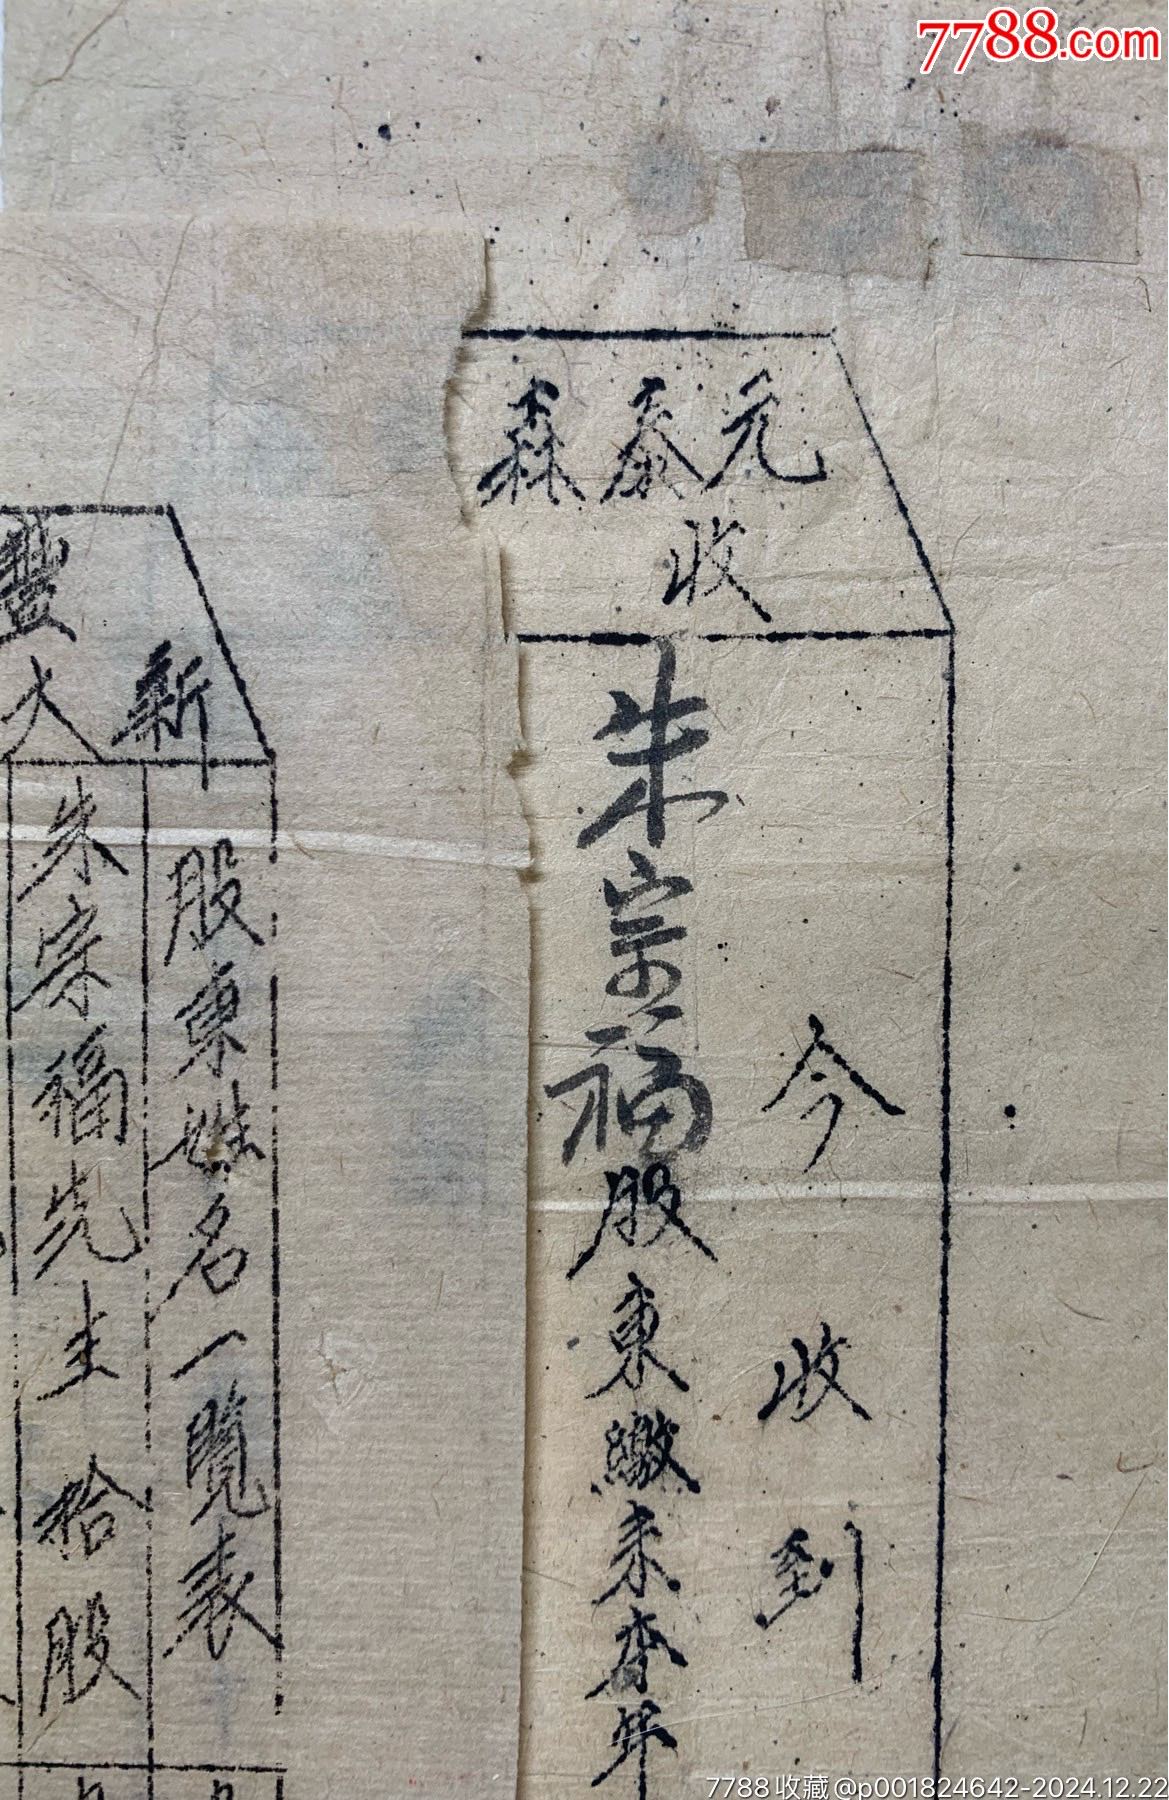 7788.com
元泰森
收
今收到
朱宗福股東繳來本年
新大豐
股東姓名一覽表
朱宗福先生拾股
7788收藏@p001824642-2024.12.22